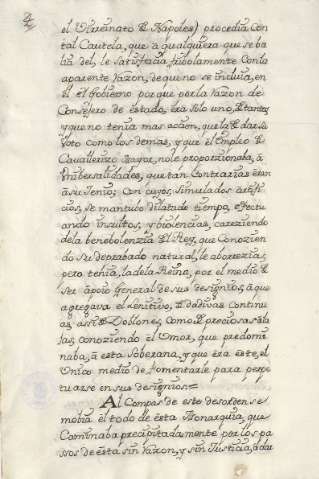 el Virreynato de Napoles) procedia con
tal Cautela, que à qualquiera que se ha
bia del, le satisfacia fribolamente con la
aparente razon, de que no se incluia, en
el el Gobierno porque por la razon de
Consejero de estado, era solo uno, de tantos
y que no tenia mas accion, que la de dar su
Voto como los demas, y que el empleo de
Cavallerizo mayor, no le proporcionaba, à
Universalidades, que tan Contrarias eran
à su Jenio; Con cuyos simulados artifi
cios, se mantubo dilatado tiempo, efectu
ando insultos, y biolencias, careziendo
de la benebolenzia del Rey, que Conozien
do su depravado natural, le aborrezia,
pero tenia, la de la Reina, por el medio de
ser apoio General de sus desygnios, à que
agregava el lenitivo, de dadivas continu
as, assi de Doblones, como de preciosas ala
jas, conoziendo el Umor, que predomi
naba, à esta Soberana, y que era este, el
Unico medio de fomentarle para perpe
tuarse en sus designios =
Al Compas de este desorden se
mobia el todo de esta Monarquia, que
Caminaba precipitadamente por los pa
sos de esta sin razon, y sin Justicia, à dar